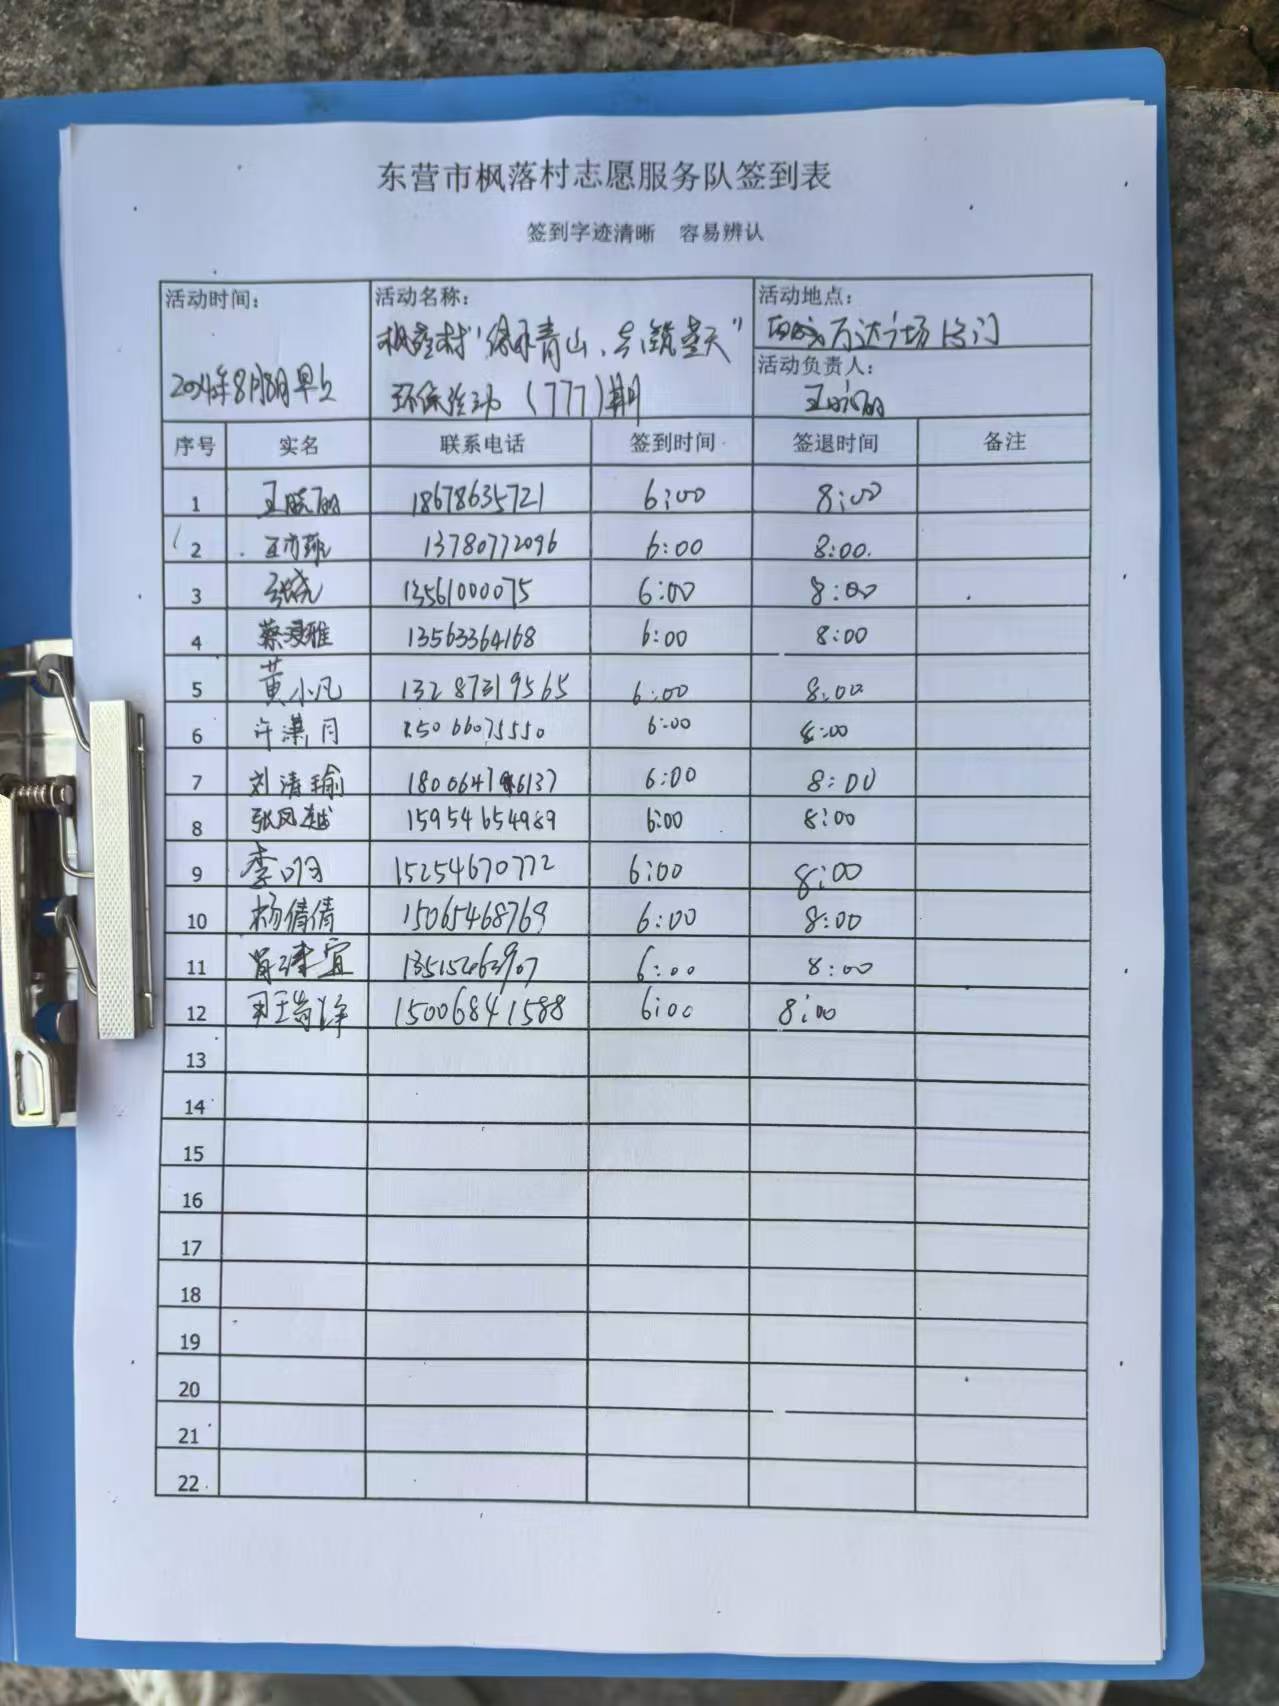 东营市枫落村志愿服务队签到表
签到字迹清晰 容易辨认
活动时间: 2024年8月8日早上
活动名称: 枫落村"绿水青山、共筑蓝天"
环保活动 (777)期
活动地点: 西城万达广场
活动负责人: 王晓丽
序号 实名 联系电话 签到时间 签退时间 备注
1 王晓丽 18678635721 6:00 8:00
2 13780772096 6:00 8:00
3 13561000075 6:00 8:00
4 13563364168 6:00 8:00
5 黄小凡 13287319565 6:00 8:00
6 许潇月 6:00 8:00
7 刘清瑜 6:00 8:00
8 张凤越 15954654989 6:00 8:00
9 15254670772 6:00 8:00
10 杨倩倩 15065468769 6:00 8:00
11 6:00 8:00
12 15006841588 6:00 8:00
13
14
15
16
17
18
19
20
21
22